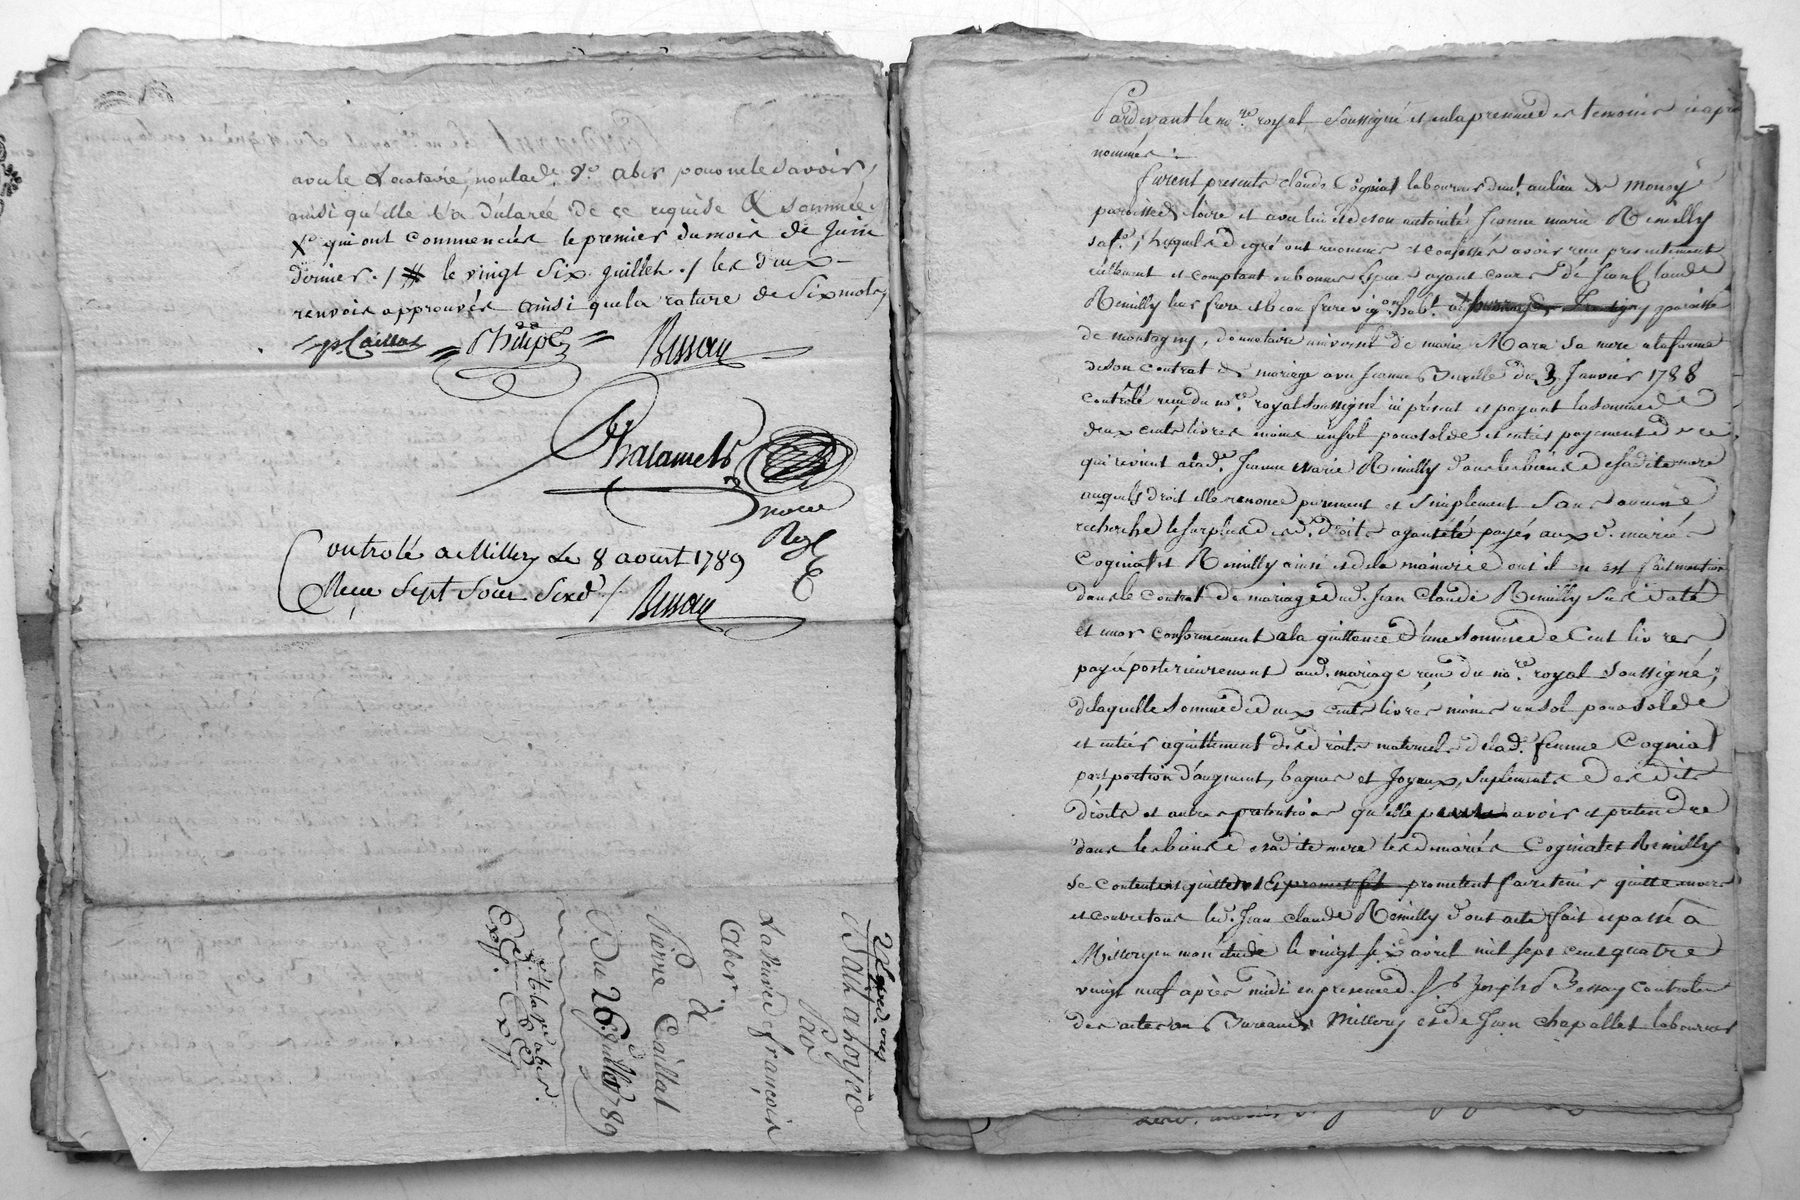 avec le locataire, non lad. v.e aber pour ne le savoir,
ainsi qu'elle l'a déclarée de ce requise & sommée
X qui ont commencés le premier du mois de Juin
dernier ./ # le vingt six juillet ./ les deux
renvois approuvés ainsi que la rature de six mots
p Caillat Philipe Bessay
Chalamel
Contrôlé a Millery Le 8 aoust 1789
Reçu sept sous six d. / Bessay
Bail a loyer
Par
La Veuve françois
Aber
à
Pierre Caillat
Du 26 Juillet 1789
Pardevant le no.re royal soussigné et en la presence des temoins ci après
nommés :
furent presents claude Cogniat laboureur dem.t au lieu de Monoy
paroisse de loire et avec lui et de son autorité Jeanne marie Remilly
sa f.e, lesquels de gré ont reconnu et confessé avoir reçu presentement
réellement et comptant en bonnes especes ayant cours de Jean Claude
Remilly leur frere et beau frere vig.on hab.t paroisse
de montagny, donnataire universel de marie Mara sa mere a la forme
de son contrat de mariage avec Jeanne du 3 Janvier 1788
contrôlé reçu du no.re royal soussigné ici présent et payant la somme de
deux cents livres moins un sol pour solde et entier payement de ce
qui revient a lad.e Jeanne Marie Remilly dans les biens de sadite mere
auxquels droit elle renonce purement et simplement sans aucune
recherche le surplus desd. droits ayant été payés aux d. mariés
Cogniat et Remilly ainsi et de la maniere dont il en est fait mention
dans le contrat de mariage dud. Jean Claude Remilly sus daté
et encor conformement a la quittance d'une somme de Cent livres
payé posterieurement aud. mariage reçu du no.re royal soussigné;
de laquelle somme de deux cents livres moins un sol pour solde
et entier aquittement des droits maternels de lad.e femme Cogniat
part, portion d'augment, bagues et Joyaux, suplements desdits
droits et autres pretentions qu'elle avoir et pretendre
dans les biens de sadite mere lesd mariés Cogniat et Remilly
se contentent quittent et promettent faire tenir quitte envers
et contre tous led. Jean Claude Remilly dont acte fait et passé à
Millery en mon étude le vingt six avril mil sept cent quatre
vingt neuf après midi en presence de s.r Joseph Bessay controleur
des actes au Bureau de Millery et de Jean chapallet laboureur